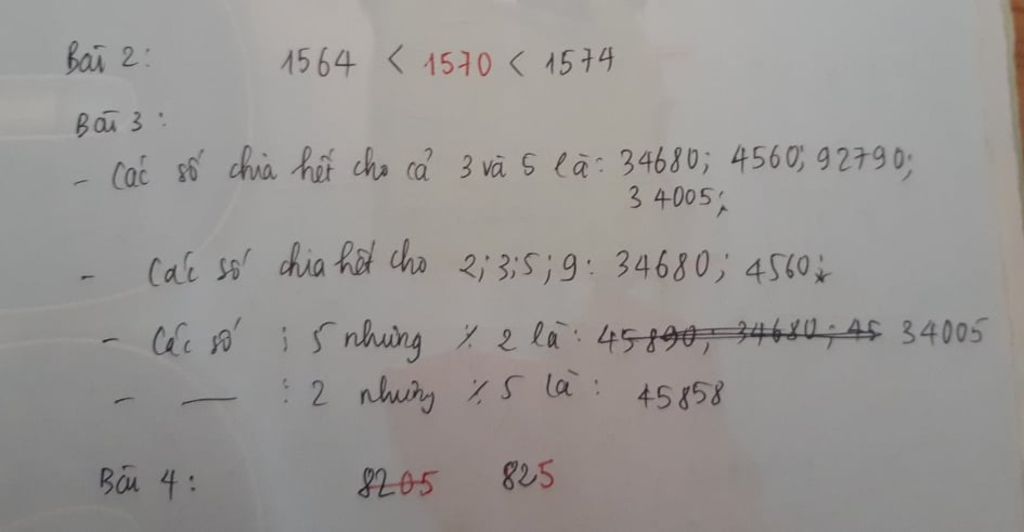 Bài 2: 1564 < 1570 < 1574
Bài 3:
- Các số chia hết cho cả 3 và 5 là: 34680; 4560; 92790;
34005;
- Các số chia hết cho 2;3;5;9: 34680; 4560;
- Các số ⋮ 5 nhưng ⋮̸ 2 là: 45890; 34680; 45 34005
- — ⋮ 2 nhưng ⋮̸ 5 là: 45858
Bài 4: 8205 825